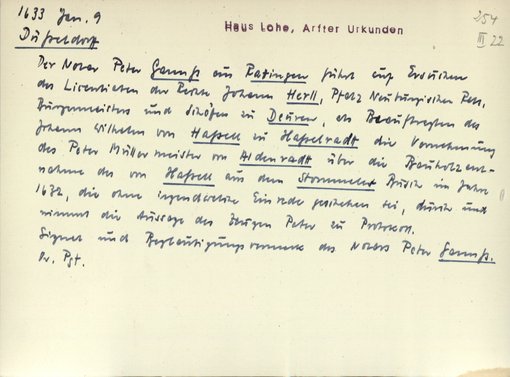 1633 Jan. 9
Düsseldorf
Haus Lohe, Arfter Urkunden
254
III 22
Der Notar Peter Gamß aus Ratingen führt auf Ersuchen
des Licentiaten der Rechte Johann Herll, Pfalz Neuburgischen Rats,
Bürgermeisters und Schöffen zu Deuren, als Beauftragten des
Johann Wilhelm von Hassell zu Hasselradt die Vernehmung
des Peter Müllermeister von Aldenradt über die Bauholzent-
nahme des von Hassell aus dem Stommeler Busch im Jahre
1632, die ohne irgendwelche Einrede geschehen sei, durch und
nimmt die Aussage des Zeugen Peter zu Protokoll.
Signet und Beglaubigungsvermerk des Notars Peter Gamß.
Or. Pgt.